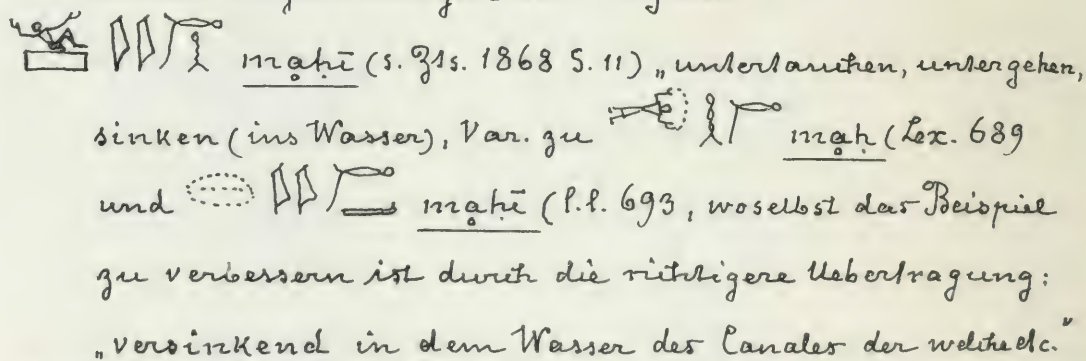 mạḥī (s. Zts. 1868 S. 11) „untertauchen, untergehen,
sinken (ins Wasser), Var. zu mạḥ (Lex. 689
und mạḥī (l.l. 693, woselbst das Beispiel
zu verbessern ist durch die richtigere Uebertragung:
„versinkend in dem Wasser des Canales der welche etc."